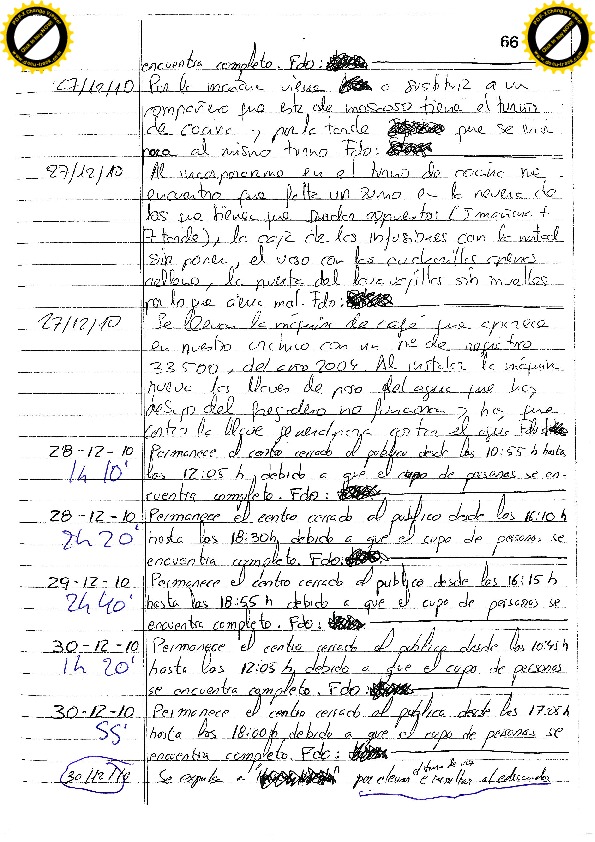 66
encuentra completo. Fdo:
27/12/10 Por la mañana viene a sustituir a un
compañero que esta de moscoso tiene el turno
de cocina y por la tarde que se
para al mismo turno Fdo:
27/12/10 Al incorporarme en el turno de cocina me
encuentro que falta un zumo en la nevera de
los que tienen que quedar expuestos (7 mañana +
7 tarde), la caja de las infusiones con la mitad
sin poner, el vaso con las cucharillas apenas
relleno, la puerta del lavavajillas sin muelles
por lo que cierra mal. Fdo:
27/12/10 Se llevan la máquina de café que aparece
en nuestro archivo con un nº de registro
33500, del año 2004. Al instalar la máquina
nueva las llaves de paso del agua que hay
debajo del fregadero no funcionan y hay que
cortar la llave general para cortar el agua Fdo:
28-12-10 Permanece el centro cerrado al publico desde las 10:55 h hasta
1h 10' las 12:05 h, debido a que el cupo de personas se en-
cuentra completo. Fdo:
28-12-10 Permanece el centro cerrado al publico desde las 16:10 h
2h 20' hasta las 18:30h, debido a que el cupo de personas se
encuentra completo. Fdo:
29-12-10 Permanece el centro cerrado al publico desde las 16:15 h
2h 40' hasta las 18:55 h debido a que el cupo de personas se
encuentra completo. Fdo:
30-12-10 Permanece el centro cerrado al publico desde las 10:45 h
1h 20' hasta las 12:05 h, debido a que el cupo de personas
se encuentra completo. Fdo:
30-12-10 Permanece el centro cerrado al publico desde las 17:05 h
55' hasta las 18:00 h debido a que el cupo de personas se
encuentra completo. Fdo:
30/12/10 Se expulsa a por elevar el tono de voz e insultar al educador